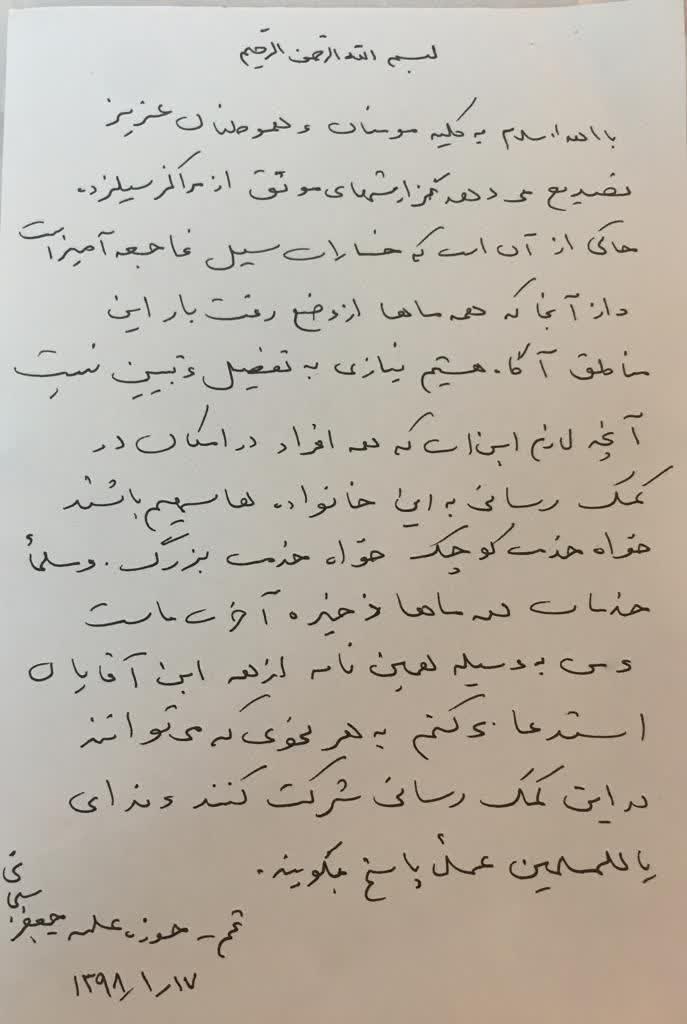 بسم الله الرحمن الرحیم
با اهداء سلام به کلیه مومنان و هموطنان عزیز
تصدیع می دهد گزارشهای موثق از مراکز سیلزده
حاکی از آن است که خسارات سیل فاجعه آمیز است
و از آنجا که همه ماها از وضع رقت بار این
مناطق آگاه هستیم نیازی به تفصیل و تبیین نیست
آنچه لازم است این است که همه افراد در امکان در
کمک رسانی به این خانواده ها سهیم باشند
خواه خدمت کوچک خواه خدمت بزرگ. و مسلماً
خدمات همه ماها ذخیره آخرت ماست
و من به وسیله همین نامه از همه این آقایان
استدعا می کنم به هر نحوی که می توانند
در این کمک رسانی شرکت کنند و ندای
یا للمسلمین عملاً پاسخ بگویند.
قم - حوزه علمیه جعفر سبحانی
۱۳۹۸/۱/۱۷